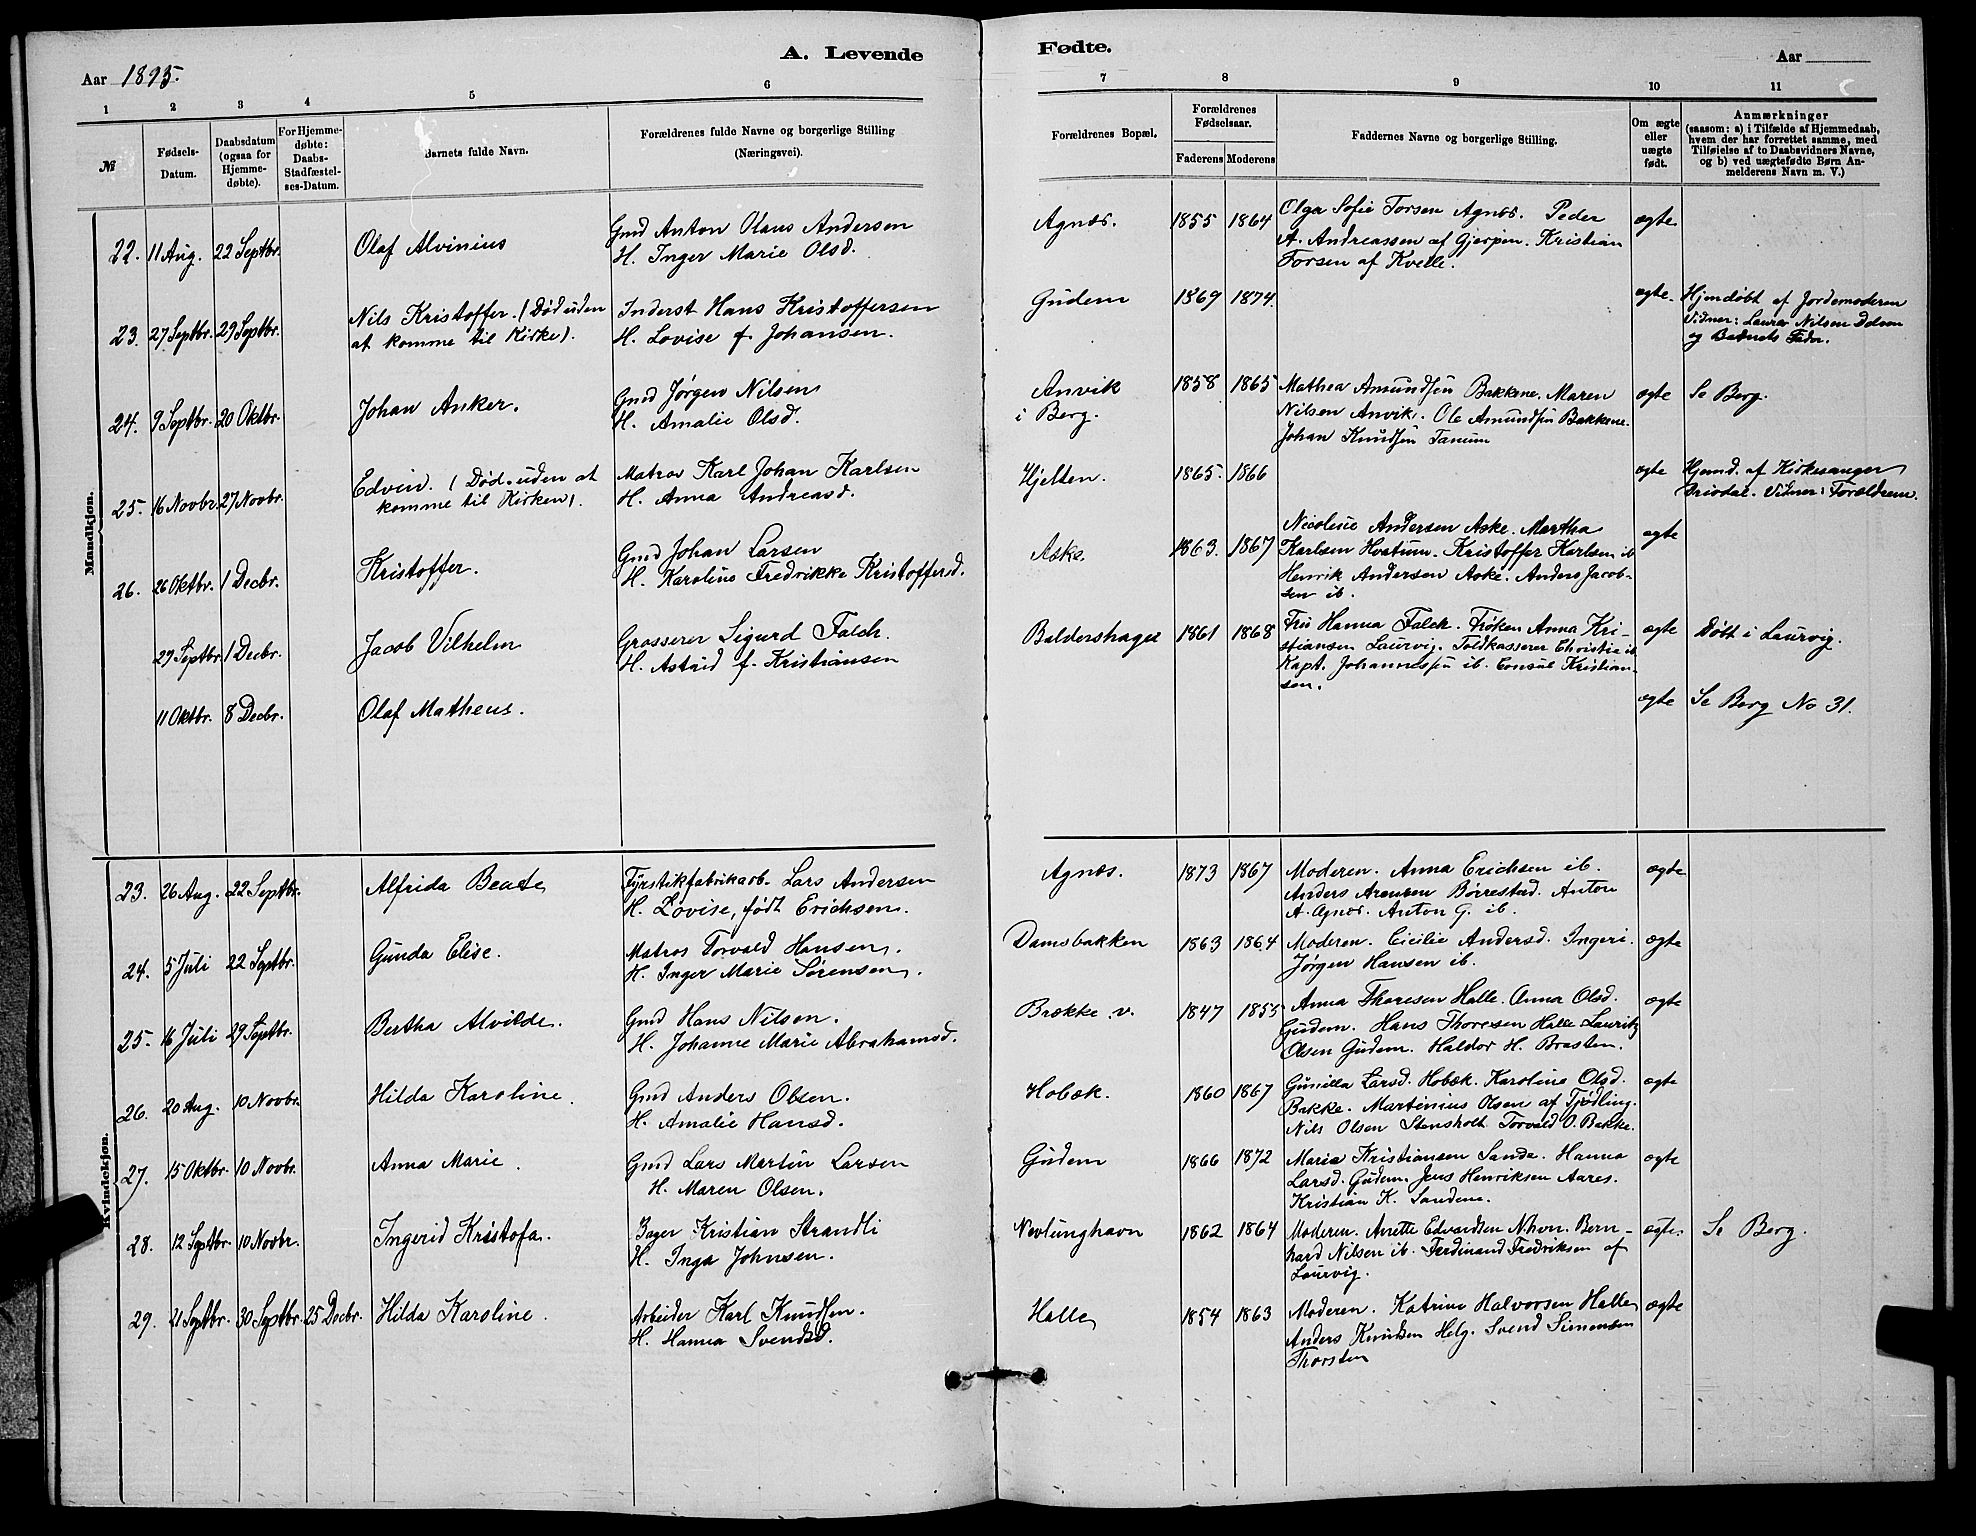 A. Levende
Fødte.
Aar 1895.
Aar
1 2 3 4 5 6 7 8 9 10 11
№
Fødsels-
Datum.
Daabsdatum
(ogsaa for
Hjemme-
døbte).
For Hjemme-
døbte:
Daabs-
Stadfæstel-
ses-Datum.
Barnets fulde Navn.
Forældrenes fulde Navne og borgerlige Stilling
(Næringsvei).
Forældrenes Bopæl.
Forældrenes
Fødselsaar.
Faderens Moderens
Faddernes Navne og borgerlige Stilling.
Om ægte
eller
uægte
født.
Anmærkninger
(saasom: a) i Tilfælde af Hjemmedaab,
hvem der har forrettet samme, med
Tilføielse af to Daabsvidners Navne,
og b) ved uægtefødte Børn An-
melderens Navn m. V.)
Mandkjøn.
22. 11 Aug. 22 Septbr. Olaf Alvinius
Gmd Anton Hans Andersen
H. Inger Marie Olsd.
Agnæs. 1855 1864
Olga Sofie Torsen Agnæs. Peder
A. Andreassen af Gjerpen. Kristian
Torsen af Kvelle.
ægte
23. 27 Septbr. 29 Septbr.
Nils Kristoffer. (Død uden
at komme til Kirke).
Inderst Hans Kristoffersen
H. Lovise f. Johansen.
Gudem 1869 1874.
ægte.
Hjemdøbt af Jordemoderen
Vidner: Laura Nilsen Dolven
og Barnets Fader.
24. 9 Septbr. 20 Oktbr. Johan Anker.
Gmd Jørgen Nilsen
H. Amalie Olsd.
Anvik
i Berg.
1858 1865
Mathea Amundsen Bakkene. Maren
Nilsen Anvik. Ole Amundsen Bakkene.
Johan Knudsen Tanum
ægte Se Berg.
25. 16 Novbr. 27 Novbr.
Edvin. (Død uden at
komme til Kirken).
Matros Karl Johan Karlsen
H. Anna Andreasd.
Hjelten. 1865. 1866
ægte
Hjemd. af Kirkesanger
Briodal. Vidner: Forældrene.
26. 26 Oktbr. 1 Decbr. Kristoffer.
Gmd Johan Larsen
H. Karoline Fredrikke Kristoffersd.
Aske. 1863. 1867
Nicoline Andersen Aske. Martha
Karlsen Hvatum. Kristoffer Karlsen ib
Henrik Andersen Aske. Anders Jacob-
sen ib.
ægte
29 Septbr. 1 Decbr. Jacob Vilhelm
Grosserer Sigurd Falch.
H. Astrid f. Kristiansen
Baldershage 1861 1868
Fru Hanna Falck. Frøken Anna Kri-
stiansen Laurvig. Toldkasserer Christie ib
Kapt. Johannessen ib. Consul Kristian-
sen.
ægte Døbt i Laurvig.
11 Oktbr. 8 Decbr. Olaf Matheus.
ægte Se Berg No 31.
Kvindekjøn.
23. 26 Aug. 22 Septbr. Alfrida Beate
Fyrstikfabrikarb. Lars Andersen
H. Lovise, født Erichsen.
Agnæs. 1873 1867
Moderen. Anna Erichsen ib.
Anders Arensen Børrestad. Anton
A. Agnæs. Anton G. ib.
ægte
24. 5 Juli 22 Septbr. Gunda Elise.
Matros Torvald Hansen.
H. Inger Marie Sørensen.
Damsbakken 1863 1864
Moderen. Cicilie Andersd. Ingeri.
Jørgen Hansen ib.
ægte
25. 16 Juli 29 Septbr. Bertha Alvilde.
Gmd Hans Nilsen.
H. Johanne Marie Abrahamsd.
Brække v. 1847 1855
Anna Thoresen Halle. Anna Olsd.
Gudem. Hans Thoresen Halle Lauritz
Olsen Gudem. Haldor H. Bratten.
ægte
26. 20 Aug. 10 Novbr. Hilda Karoline.
Gmd Anders Olsen.
H. Amalie Hansd.
Hobæk. 1860 1867
Gunilla Larsd. Hobæk. Karoline Olsd.
Bakke. Martinius Olsen af Tjødling.
Nils Olsen Stensholt Torvald O. Bakke.
ægte
27. 15 Oktbr. 10 Novbr. Anna Marie.
Gmd Lars Martin Larsen
H. Maren Olsen.
Gudem 1866 1872
Maria Kristiansen Sande. Hanna
Larsd. Gudem. Jens Henriksen Aares.
Kristian K. Sandene.
ægte
28. 12 Septbr. 10 Novbr. Ingerid Kristofa.
Bager Kristian Strandli
H. Inga Johnsen.
Nevlunghavn 1862 1864
Moderen. Anette Edvardsen Nhvn. Bern-
hard Nilsen ib. Ferdinand Fredriksen af
Laurvig.
ægte. Se Berg.
29. 21 Septbr. 30 Septbr. 25 Decbr. Hilda Karoline.
Arbeider Karl Knudsen.
H. Hanna Svendsd.
Halle 1854 1863
Moderen. Katrine Halvorsen Halle
Anders Knudsen Helg. Svend Simonsen
Thorsten
ægte